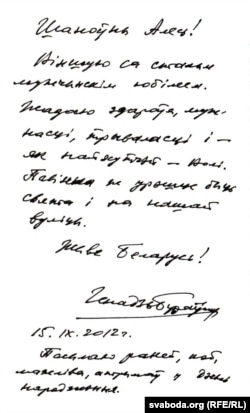 Шаноўны Алесь!
Віншую са сталым
мужчынскім юбілеем.
Жадаю здароўя, муж-
насці, трываласці і —
як найхутчэй — волі.
Павінна ж урэшце быць
свята і на нашай
вуліцы.
Жыве Беларусь!
15.IX.2012 г.
Пасылаю раней, каб,
магчыма, атрымаў у дзень
народзінаў.
svaboda.org (RFE/RL)